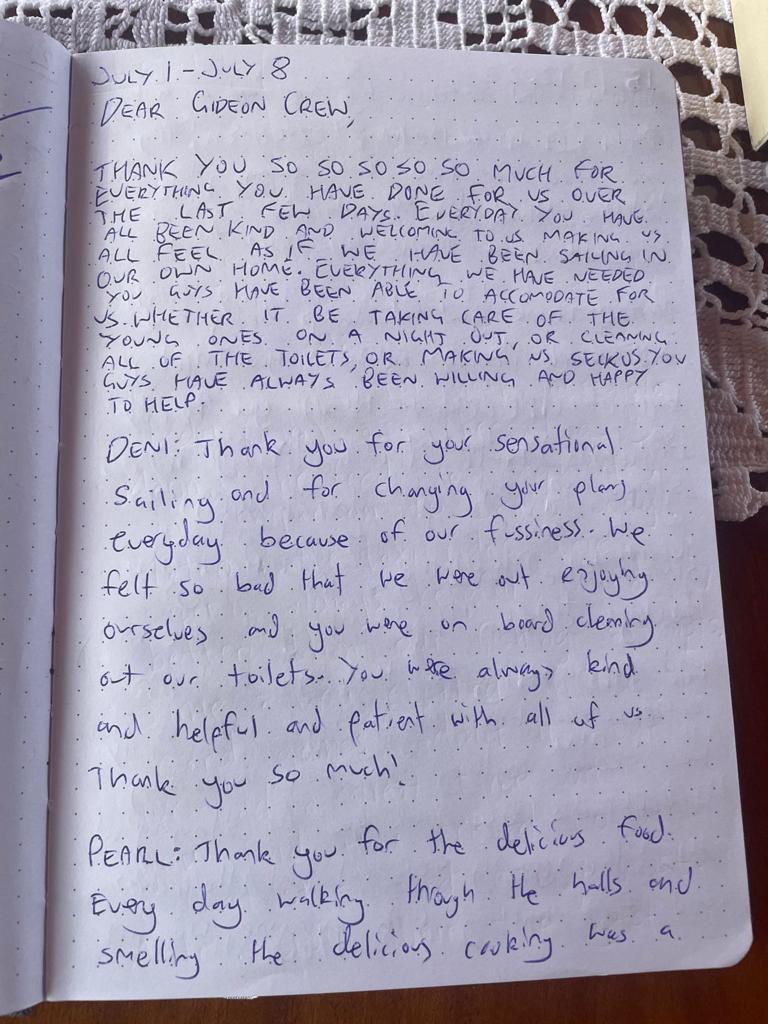 JULY 1 - JULY 8
DEAR GIDEON CREW,
THANK YOU SO SO SO SO SO MUCH FOR
EVERYTHING YOU HAVE DONE FOR US OVER
THE LAST FEW DAYS. EVERYDAY YOU HAVE
ALL BEEN KIND AND WELCOMING TO US MAKING US
ALL FEEL AS IF WE HAVE BEEN SAILING IN
OUR OWN HOME. EVERYTHING WE HAVE NEEDED
YOU GUYS HAVE BEEN ABLE TO ACCOMODATE FOR
US WHETHER IT BE TAKING CARE OF THE
YOUNG ONES ON A NIGHT OUT, OR CLEANING
ALL OF THE TOILETS, OR MAKING US YOU
GUYS HAVE ALWAYS BEEN WILLING AND HAPPY
TO HELP.
DENI: Thank you for your sensational
Sailing and for changing your plans
everyday because of our fussiness. We
felt so bad that we were out enjoying
ourselves and you were on board cleaning
out our toilets. You were always kind
and helpful and patient with all of us
Thank you so much!
PEARL: Thank you for the delicious food.
Every day walking through the halls and
smelling the delicious cooking was a